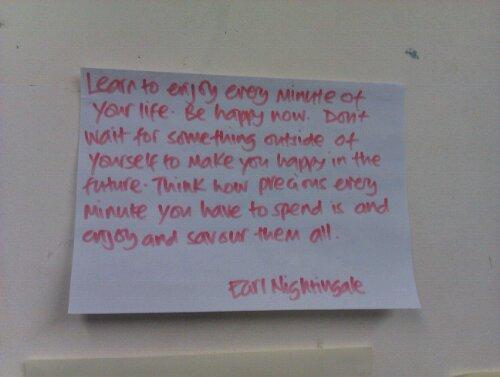 Learn to enjoy every minute of
your life. Be happy now. Don't
wait for something outside of
yourself to make you happy in the
future. Think how precious every
minute you have to spend is and
enjoy and savour them all.
Earl Nightingale